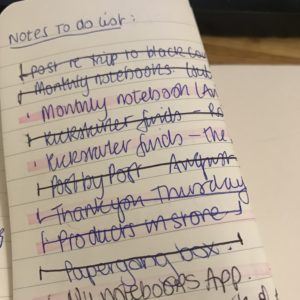 Notes To do list:
Post re trip to black
Monthly notebooks:
Monthly notebook (An
Kickstarter funds -
Kickstarter funds - the
Post by Post August
Thank you Thursday
Products in store
Papergang box.
notebooks App.